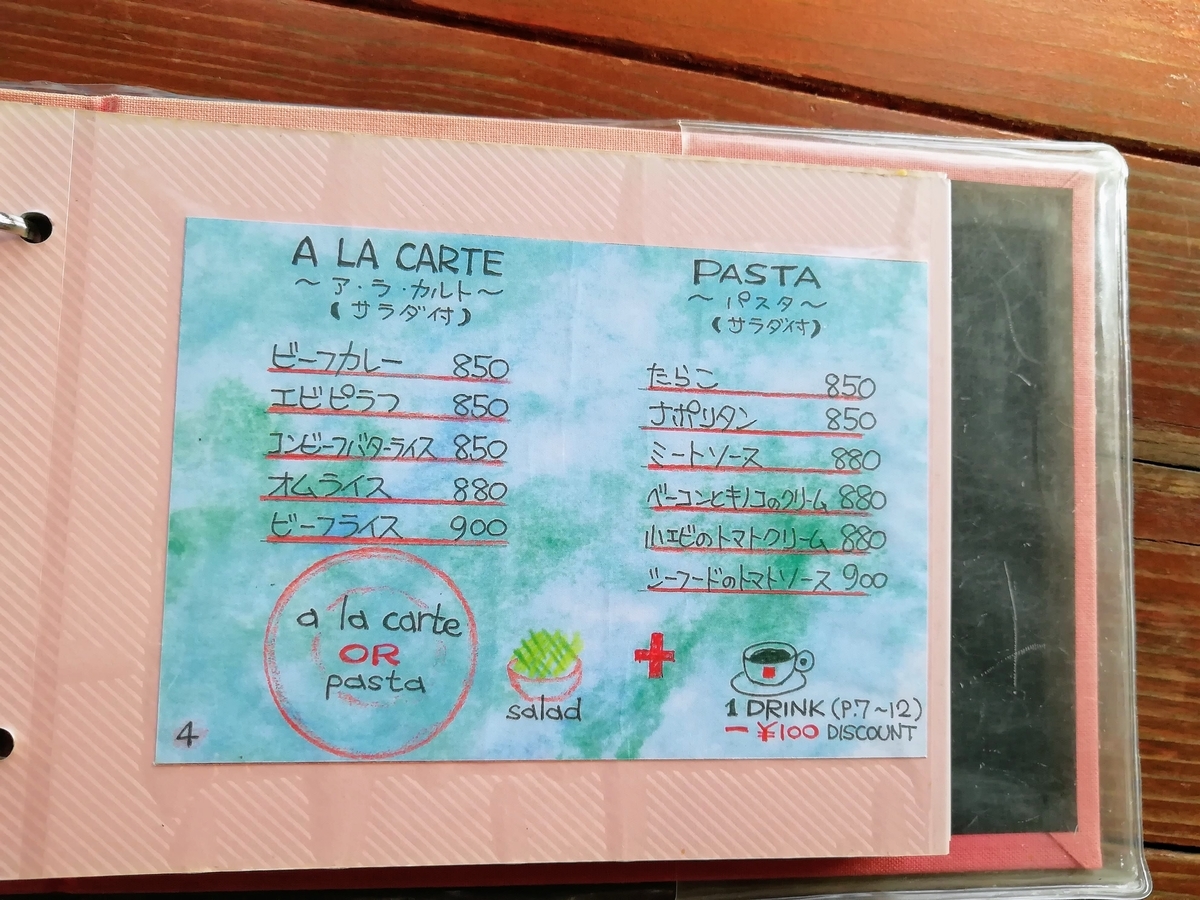 A LA CARTE
～ア・ラ・カルト～
(サラダ付)
ビーフカレー 850
エビピラフ 850
コンビーフバターライス 850
オムライス 880
ビーフライス 900
PASTA
～パスタ～
(サラダ付)
たらこ 850
ナポリタン 850
ミートソース 880
ベーコンとキノコのクリーム 880
小エビのトマトクリーム 880
シーフードのトマトソース 900
a la carte
OR
pasta
salad
+
1 DRINK (P.7~12)
- ¥100 DISCOUNT
4